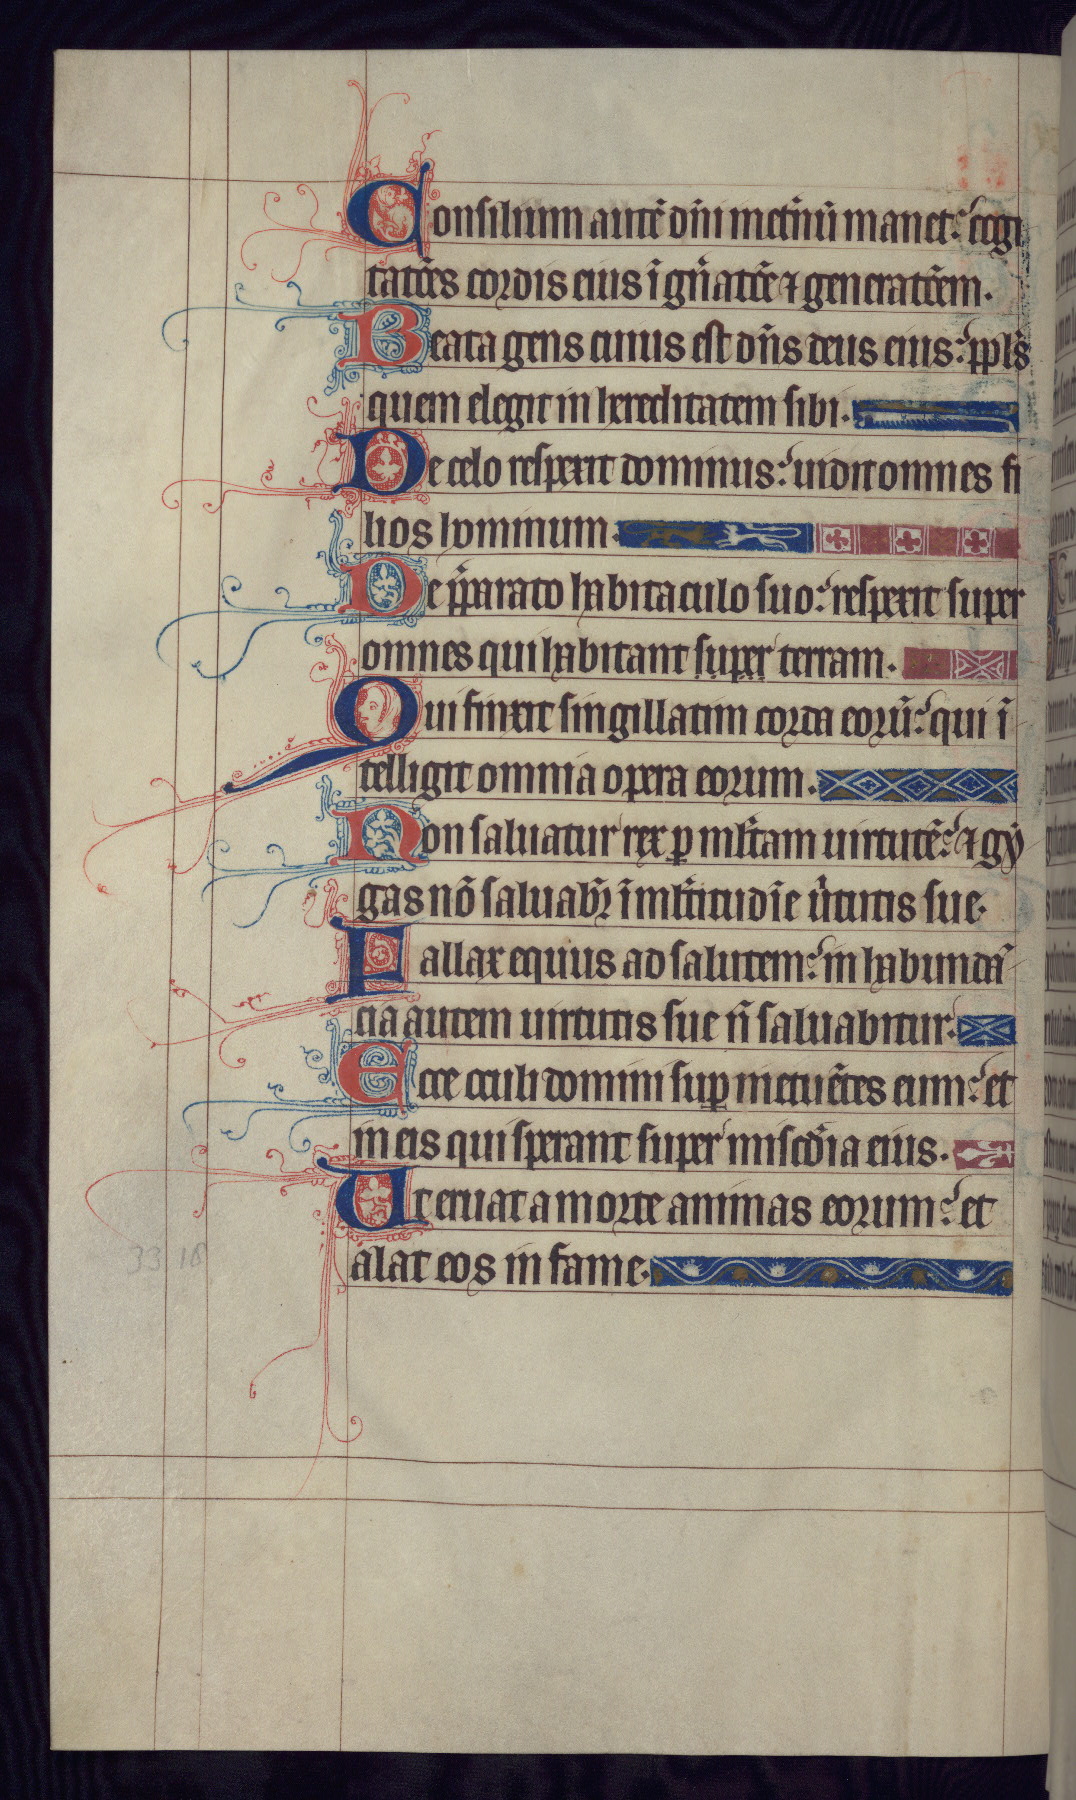 Consilium autē dn̄i inet̄nū manet: cogi
tatōēs cordis eius ī gn̄atōe ⁊ generatōem.
Beata gens cuius est dn̄s deus eius: ppl̄s
quem elegit in hereditatem sibi.
De celo respexit dominus: uidit omnes fi
lios hominum.
De p̄parato habitaculo suo: respexit super
omnes qui habitant super terram.
Qui finxit singillatim corda eorū: qui ī
telligit omnia opera eorum.
Non saluatur rex ꝑ ml̄tam uirtutē: ⁊ gy
gas nō saluabr̄ ī ml̄titudīe ūtutis sue.
Fallax equus ad salutem: in habundā
cia autem uirtutis sue n̄ saluabitur.
Ecce oculi domini suꝑ metuētes eum: et
in eis qui sperant super misc̄dia eius.
Ut eruat a morte animas eorum: et
alat eos in fame.
33 18